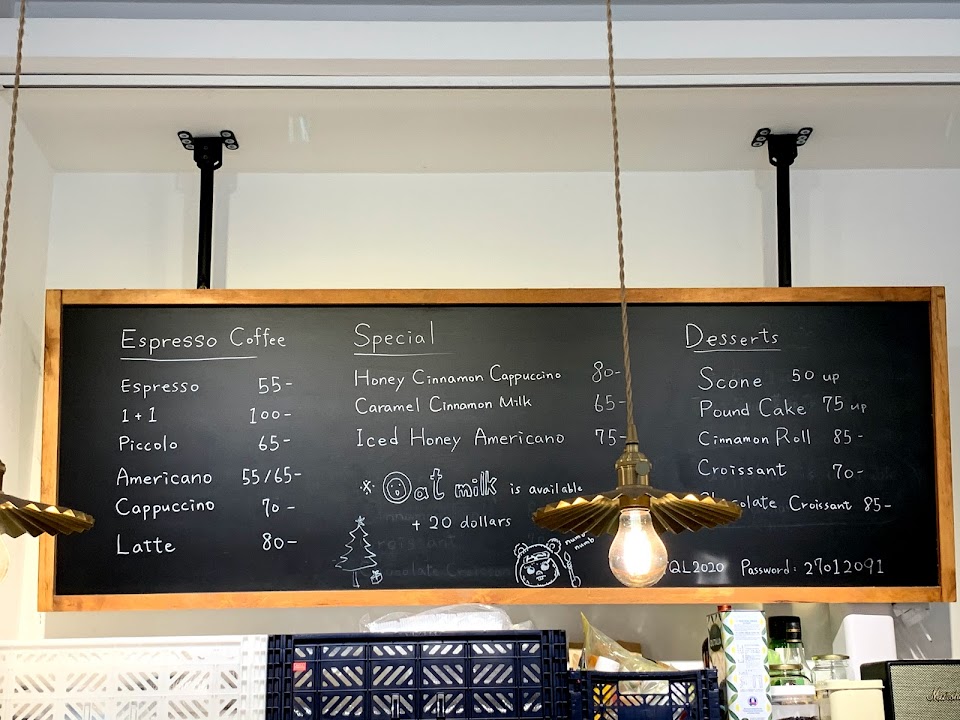 Espresso Coffee
Espresso 55-
1+1 100-
Piccolo 65-
Americano 55/65-
Cappuccino 70-
Latte 80-
Special
Honey Cinnamon Cappuccino 80-
Caramel Cinnamon Milk 65-
Iced Honey Americano 75-
※ Oat milk is available
+ 20 dollars
numb
Desserts
Scone 50 up
Pound Cake 75 up
Cinnamon Roll 85-
Croissant 70-
Chocolate Croissant 85-
QL2020 Password: 27012091